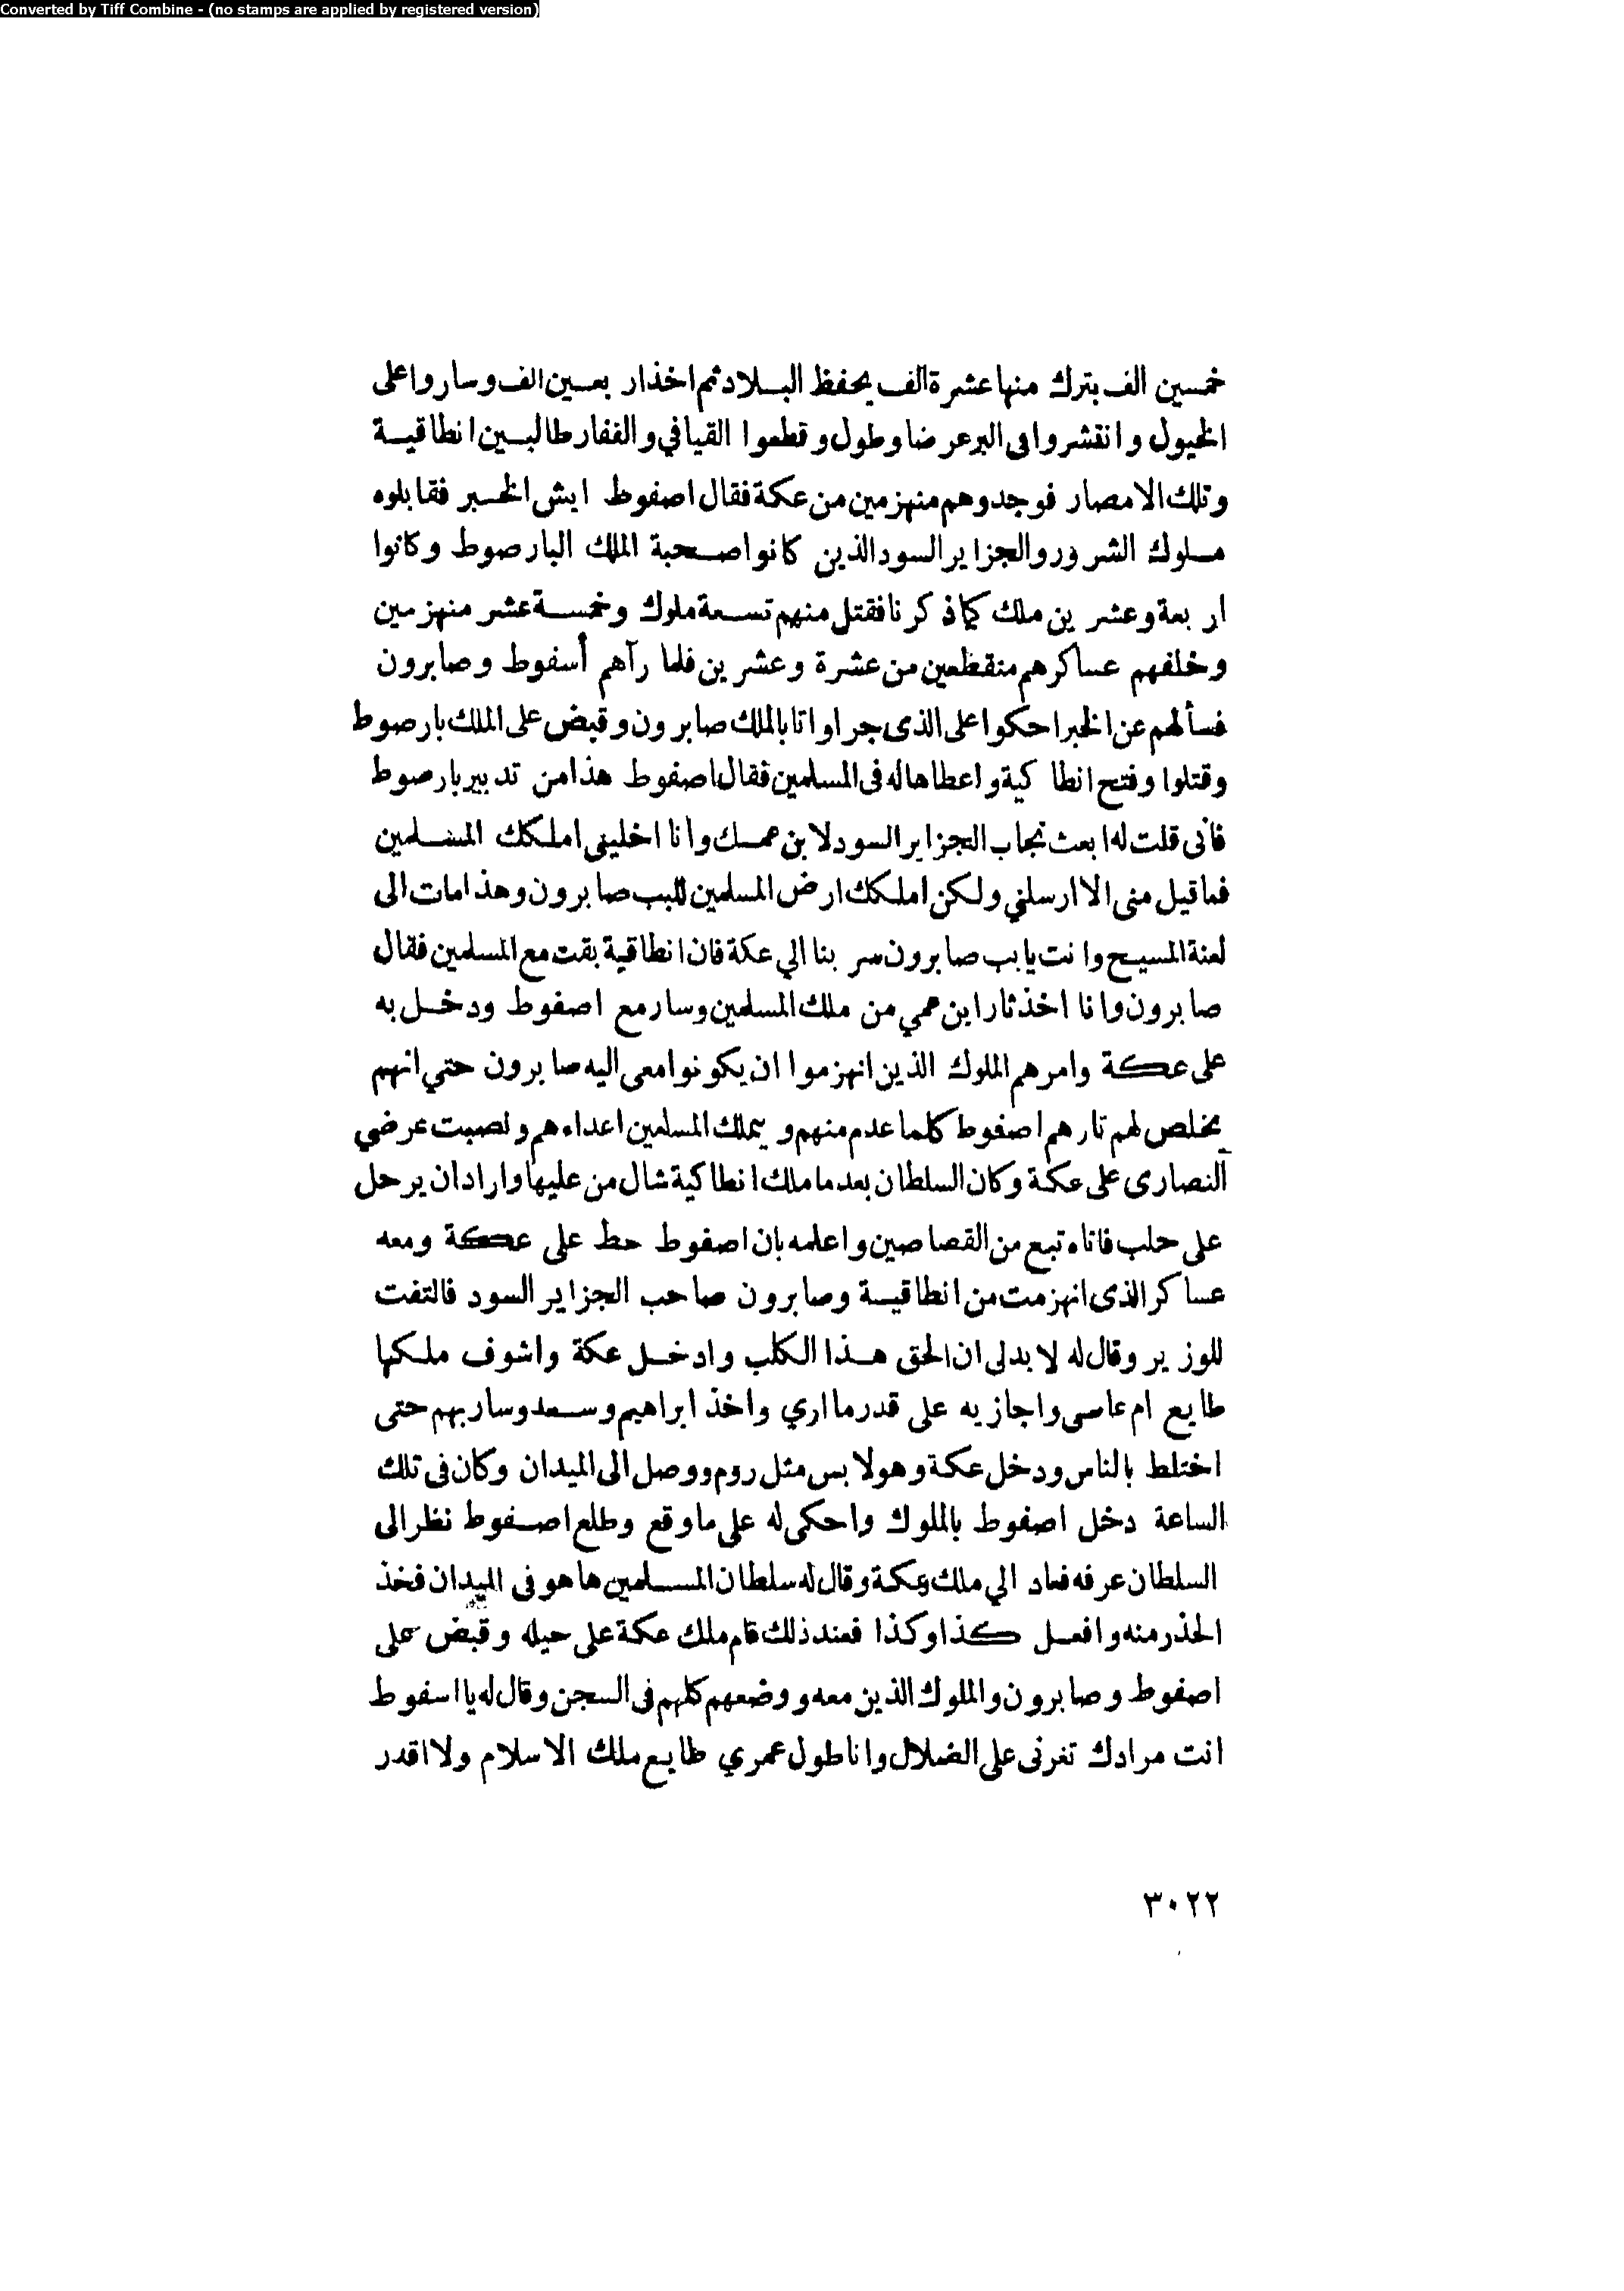 Converted by Tiff Combine - (no stamps are applied by registered version)
خمسين الف بترك منها عشرة الف يحفظ البلاد ثم اخذ اربعين الف وساروا على
الخيول وانقشروا فى البر عرضا وطول وقطعوا القيافي والففار طالبين انطاقية
وتلك الامصار فوجدوهم منهزمين من عكة فقال اصفوط ايش الخبر فقابلوه
ملوك الشرور والجزاير السود الذين كانوا صحبة الملك البارصوط وكانوا
اربعة وعشرين ملك كما ذكرنا فقتل منهم تسعة ملوك وخمسة عشر منهزمين
وخلفهم عساكرهم منقطعين من عشرة وعشرين فلما رآهم أسفوط وصابرون
فسألهم عن الخبر احكوا على الذى جرا واتا بالملك صابرون وقبض على الملك بارصوط
وقتلوا وفتح انطاكية واعطاها له فى المسلمين فقال اصفوط هذا من تدبير بارصوط
فانى قلت له ابعث نجاب الجزاير السود لابن عمك وانا اخلينى املكك المسلمين
فما قيل منى الا ارسلني ولكن املكك ارض المسلمين للبب صابرون وهذا مات الى
لعنة المسيح وانت يا بب صابرون سر بنا الي عكة فان انطاقية بقت مع المسلمين فقال
صابرون وانا اخذ ثار ابن عمي من ملك المسلمين وسار مع اصفوط ودخل به
على عكة وامرهم الملوك الذين انهزموا ان يكونوا معى اليه صابرون حتي انهم
يخلص لهم تارهم اصفوط كلما عدم منهم ويملك المسلمين اعداءهم ونصبت عرضي
النصارى على عكة وكان السلطان بعد ما ملك انطاكية شال من عليها واراد ان يرحل
على حلب فاتاه تبع من القصاصين واعلمه بان اصفوط حط على عكة ومعه
عساكر الذى انهزمت من انطاقية وصابرون صاحب الجزاير السود فالتفت
للوزير وقال له لا بد لى ان الحق هذا الكلب وادخل عكة واشوف ملكها
طايع ام عاصى واجازيه على قدر ما اري واخذ ابراهيم وسعد وسار بهم حتى
اختلط بالناس ودخل عكة وهو لابس مثل روم ووصل الى الميدان وكان فى تلك
الساعة دخل اصفوط بالملوك واحكى له على ما وقع وطلع اصفوط نظر الى
السلطان عرفه فعاد الي ملك عكة وقال له سلطان المسلمين ها هو فى الميدان فخذ
الحذر منه وافعل كذا وكذا فعند ذلك قام ملك عكة على حيله وقبض على
اصفوط وصابرون والملوك الذين معه ووضعهم كلهم فى السجن وقال له يا اسفوط
انت مرادك تغرنى على الضلال وانا طول عمري طايع ملك الاسلام ولا اقدر
٣٠٢٢